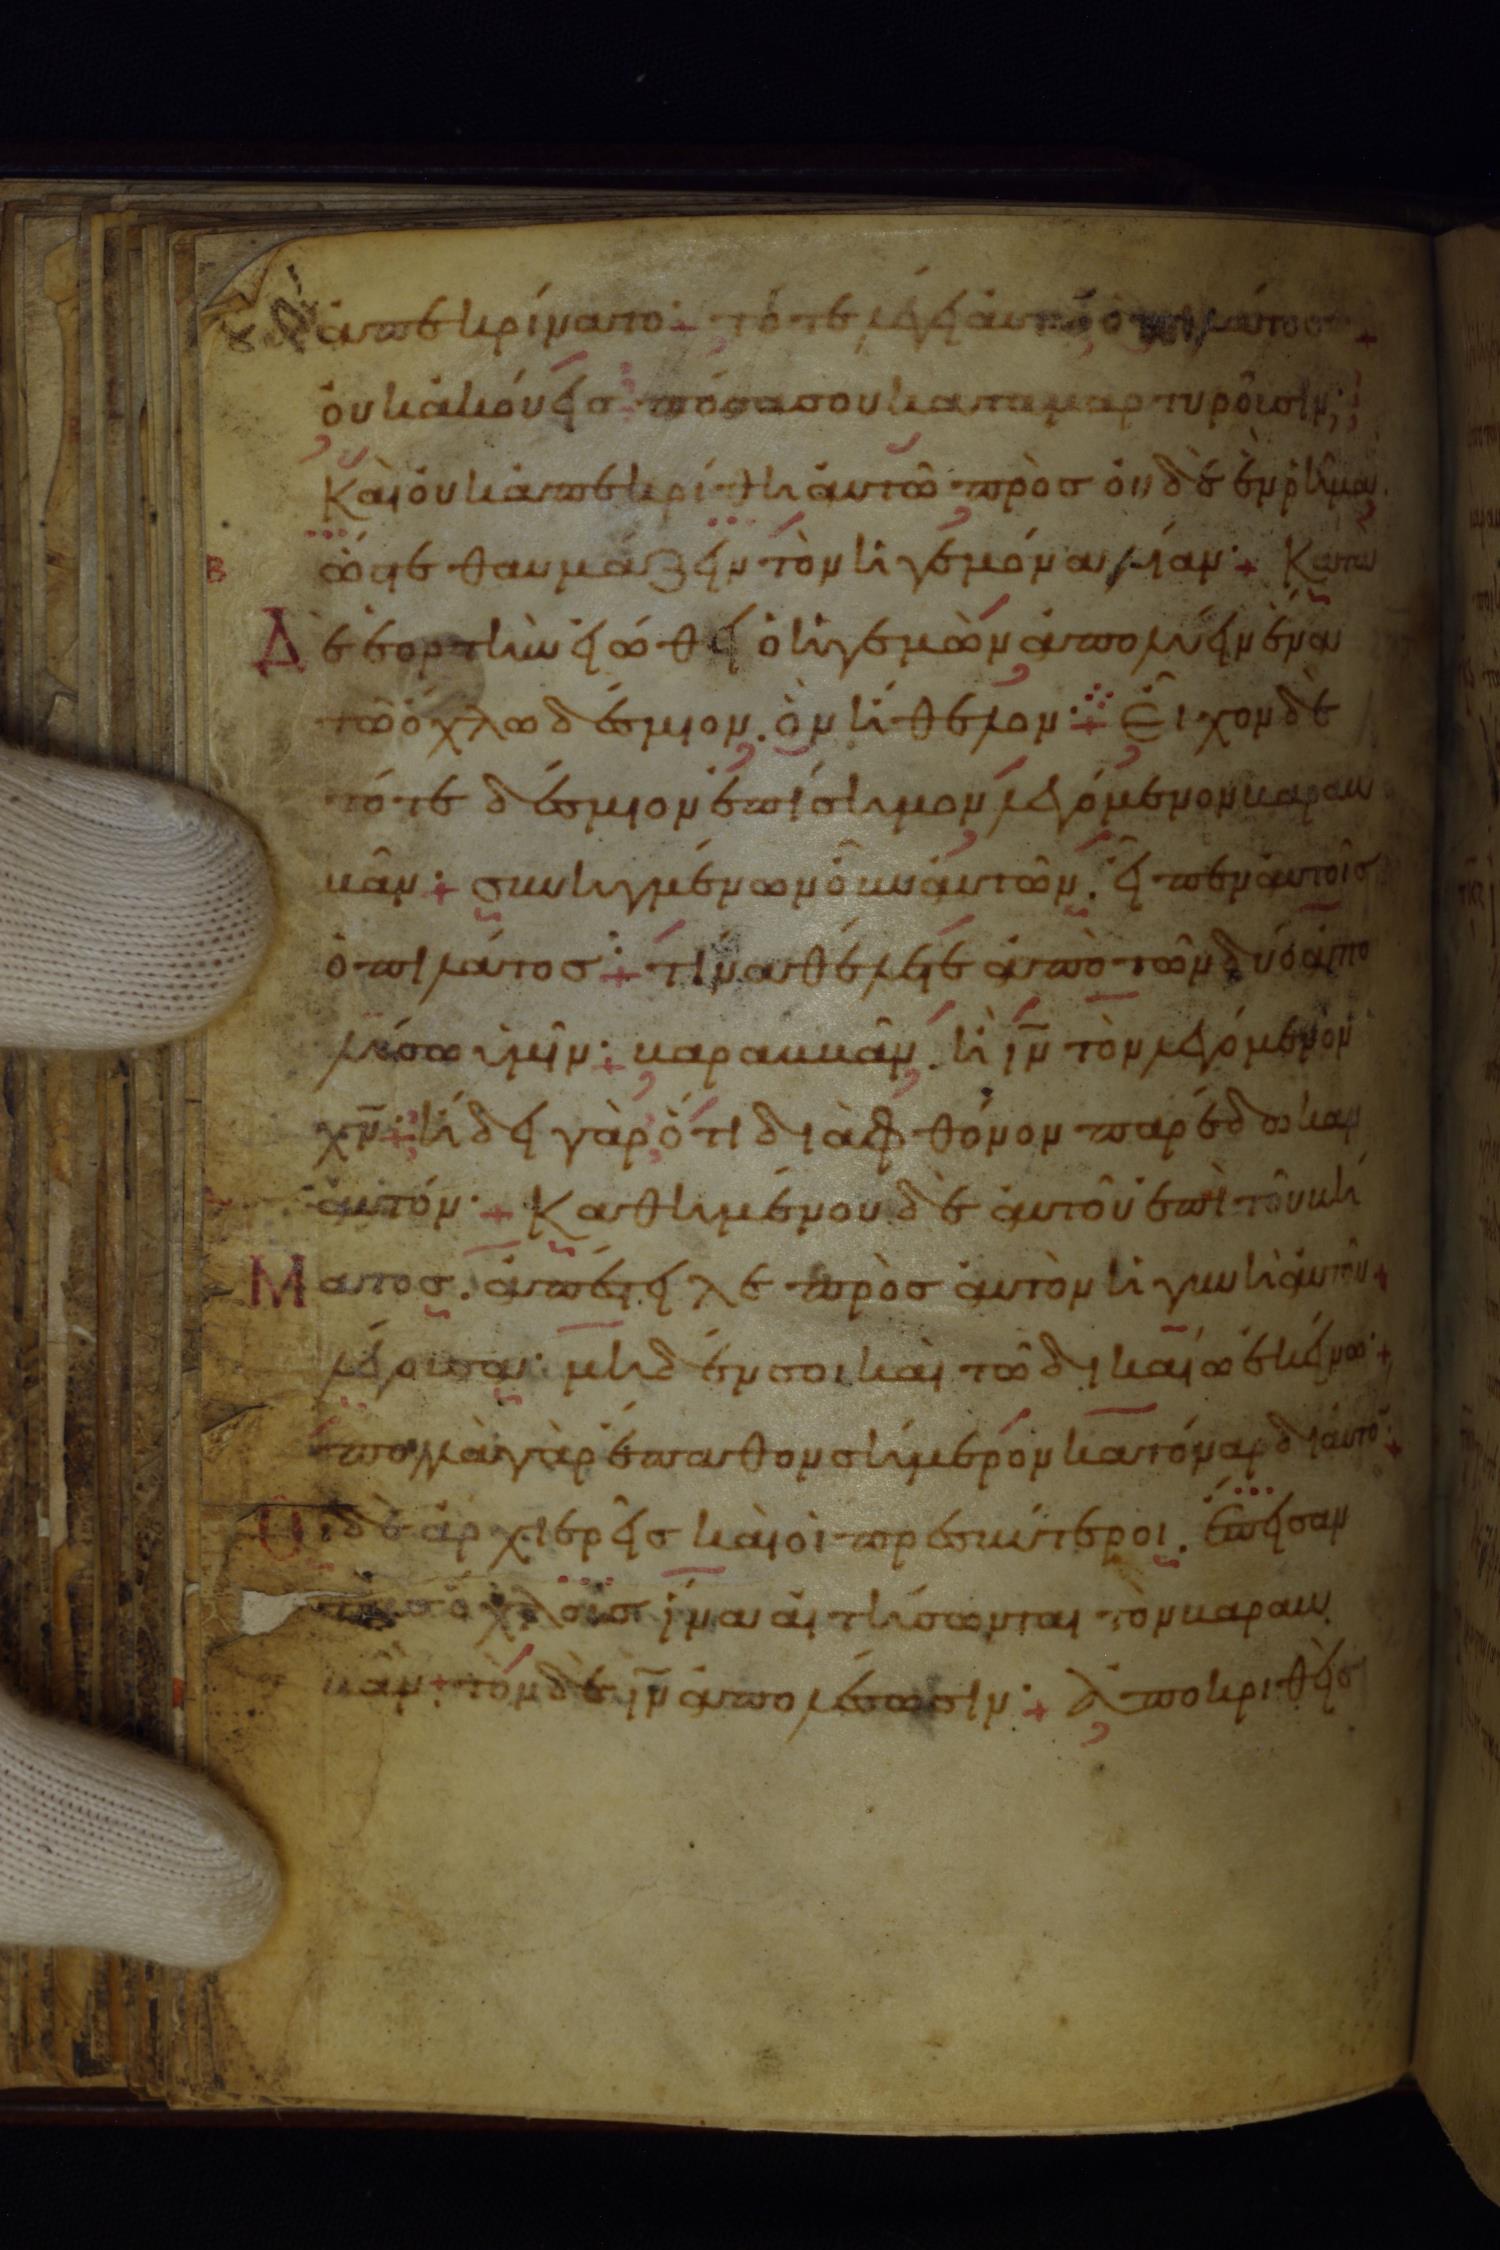 ἀπεκρίνατο· τότε λέγει αυτῶ ὁ πιλάτοσ
ὀυκ ἀκόυεισ πόσα σου καταμαρτυροῖσιν;
Καὶ ὀυκ ἀπεκρίθη ἀυτῶ πρὸσ ὀυδὲ ἐν ρῆμα.
β ὥστε θαυμάζειν τὸν ἡγεμόνα λίαν· Κατὰ
Δὲ ἑορτὴν εἰώθει ὁ ἡγεμὼν ἀπολύειν ἕνα
τῶ ὄχλω δέσμιον. ὃν ἤθελον· Εἶχον δὲ
τότε δέσμιον ἐπίσημον λεγόμενον βαραβ
βᾶν· συνηγμένων ὀῦν ἀυτῶν. εἶπεν ἀυτοῖσ
ὁ πιλάτοσ· τίνα θέλετε ἀπὸ τῶν δύο ἀπο
λύσω ὑμῖν· βαραββᾶν. ἢ ιν τὸν λεγόμενον
χν· ἤδει γὰρ ὅτι διὰ φθόνον παρέδωκαν
ἀυτόν· Καθημένου δὲ ἀυτοῦ ἐπὶ τοῦ βή
Ματοσ. ἀπέστειλε πρὸσ ἀυτὸν ἡ γυνὴ ἀυτοῦ
λέγουσα· μηδέν σοι καὶ τῶ δικαίω ἐκείνω·
πολλὰ γὰρ ἔπαθον σήμερον κατ όναρ δι ἀυτό·
Οἱ δὲ ἀρχιερεῖσ καὶ οἱ πρεσβύτεροι. ἔπεισαν
τοὺσ ὄχλουσ ἵνα αἰτήσωνται τὸν βαραβ
βᾶν· τὸν δὲ ιν ἀπολέσωσιν· Ἀποκριθεὶσ